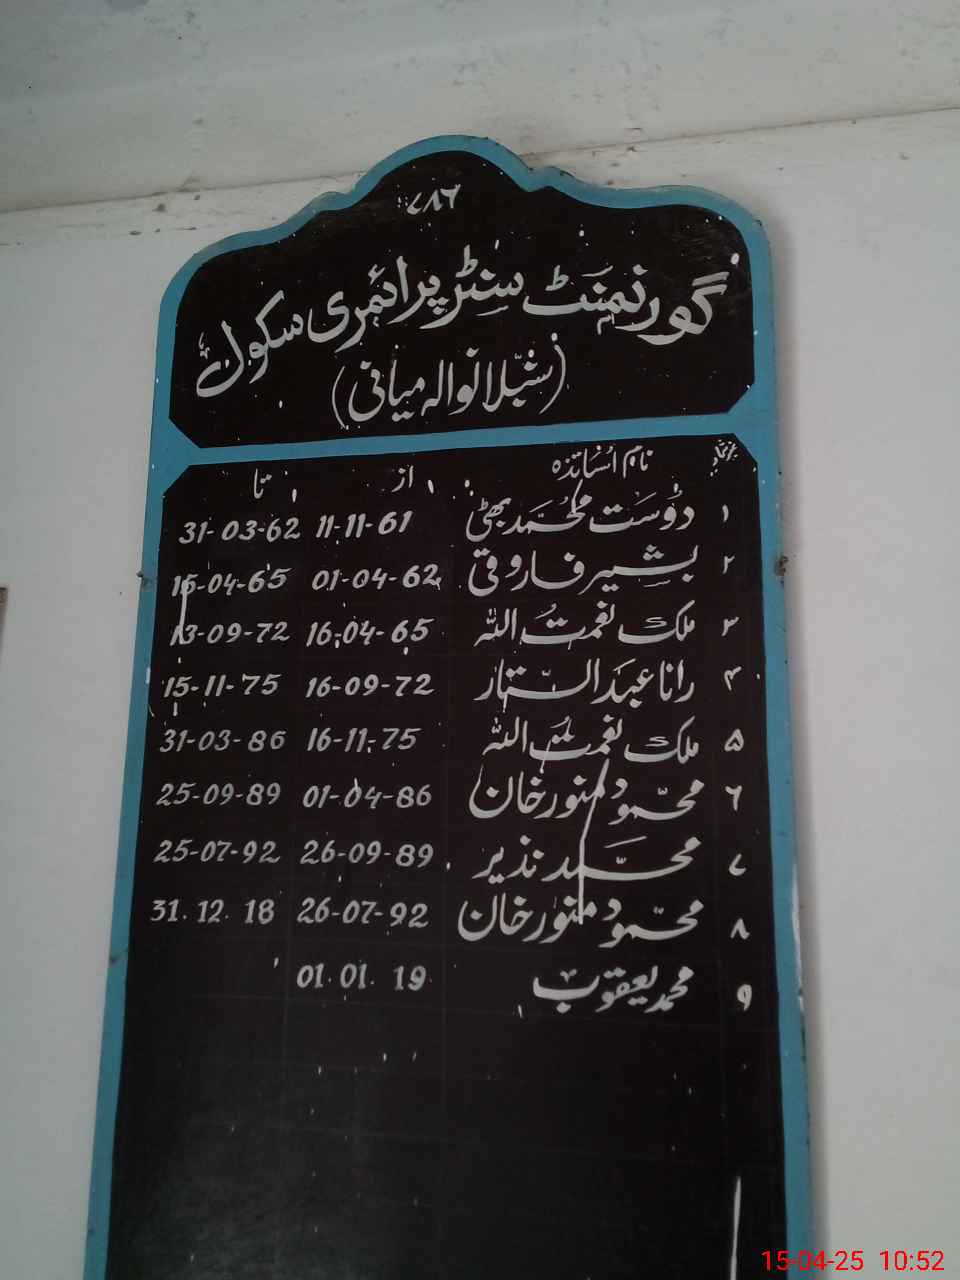 ۷۸۶
گورنمنٹ سنٹر پرائمری سکول
(شبلانوالہ میانی)
نمبر شمار نام اساتذہ از تا
۱ دوست محمد بھٹی 11-11-61 31-03-62
۲ بشیر فاروقی 01-04-62 15-04-65
۳ ملک نعمت اللہ 16-04-65 13-09-72
۴ رانا عبدالستار 16-09-72 15-11-75
۵ ملک نعمت اللہ 16-11-75 31-03-86
۶ محمود منور خان 01-04-86 25-09-89
۷ محمد نذیر 26-09-89 25-07-92
۸ محمود منور خان 26-07-92 31.12.18
۹ محمد یعقوب 01.01.19
15-04-25 10:52